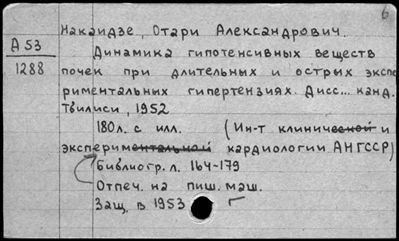 б
Накаидзе, Отари Александрович.
А 53
1288
Динамика гипотенсивных веществ
почек при длительных и острих экспе
риментальних гипертензиях. Дисс... канд.
Твилиси, 1952
180л. с илл. (Ин-т клинической и
экспериментальной кардиологии АНГССР)
Библиогр. л. 164-179
Отпеч. на пиш. маш.
Защ. в 1953